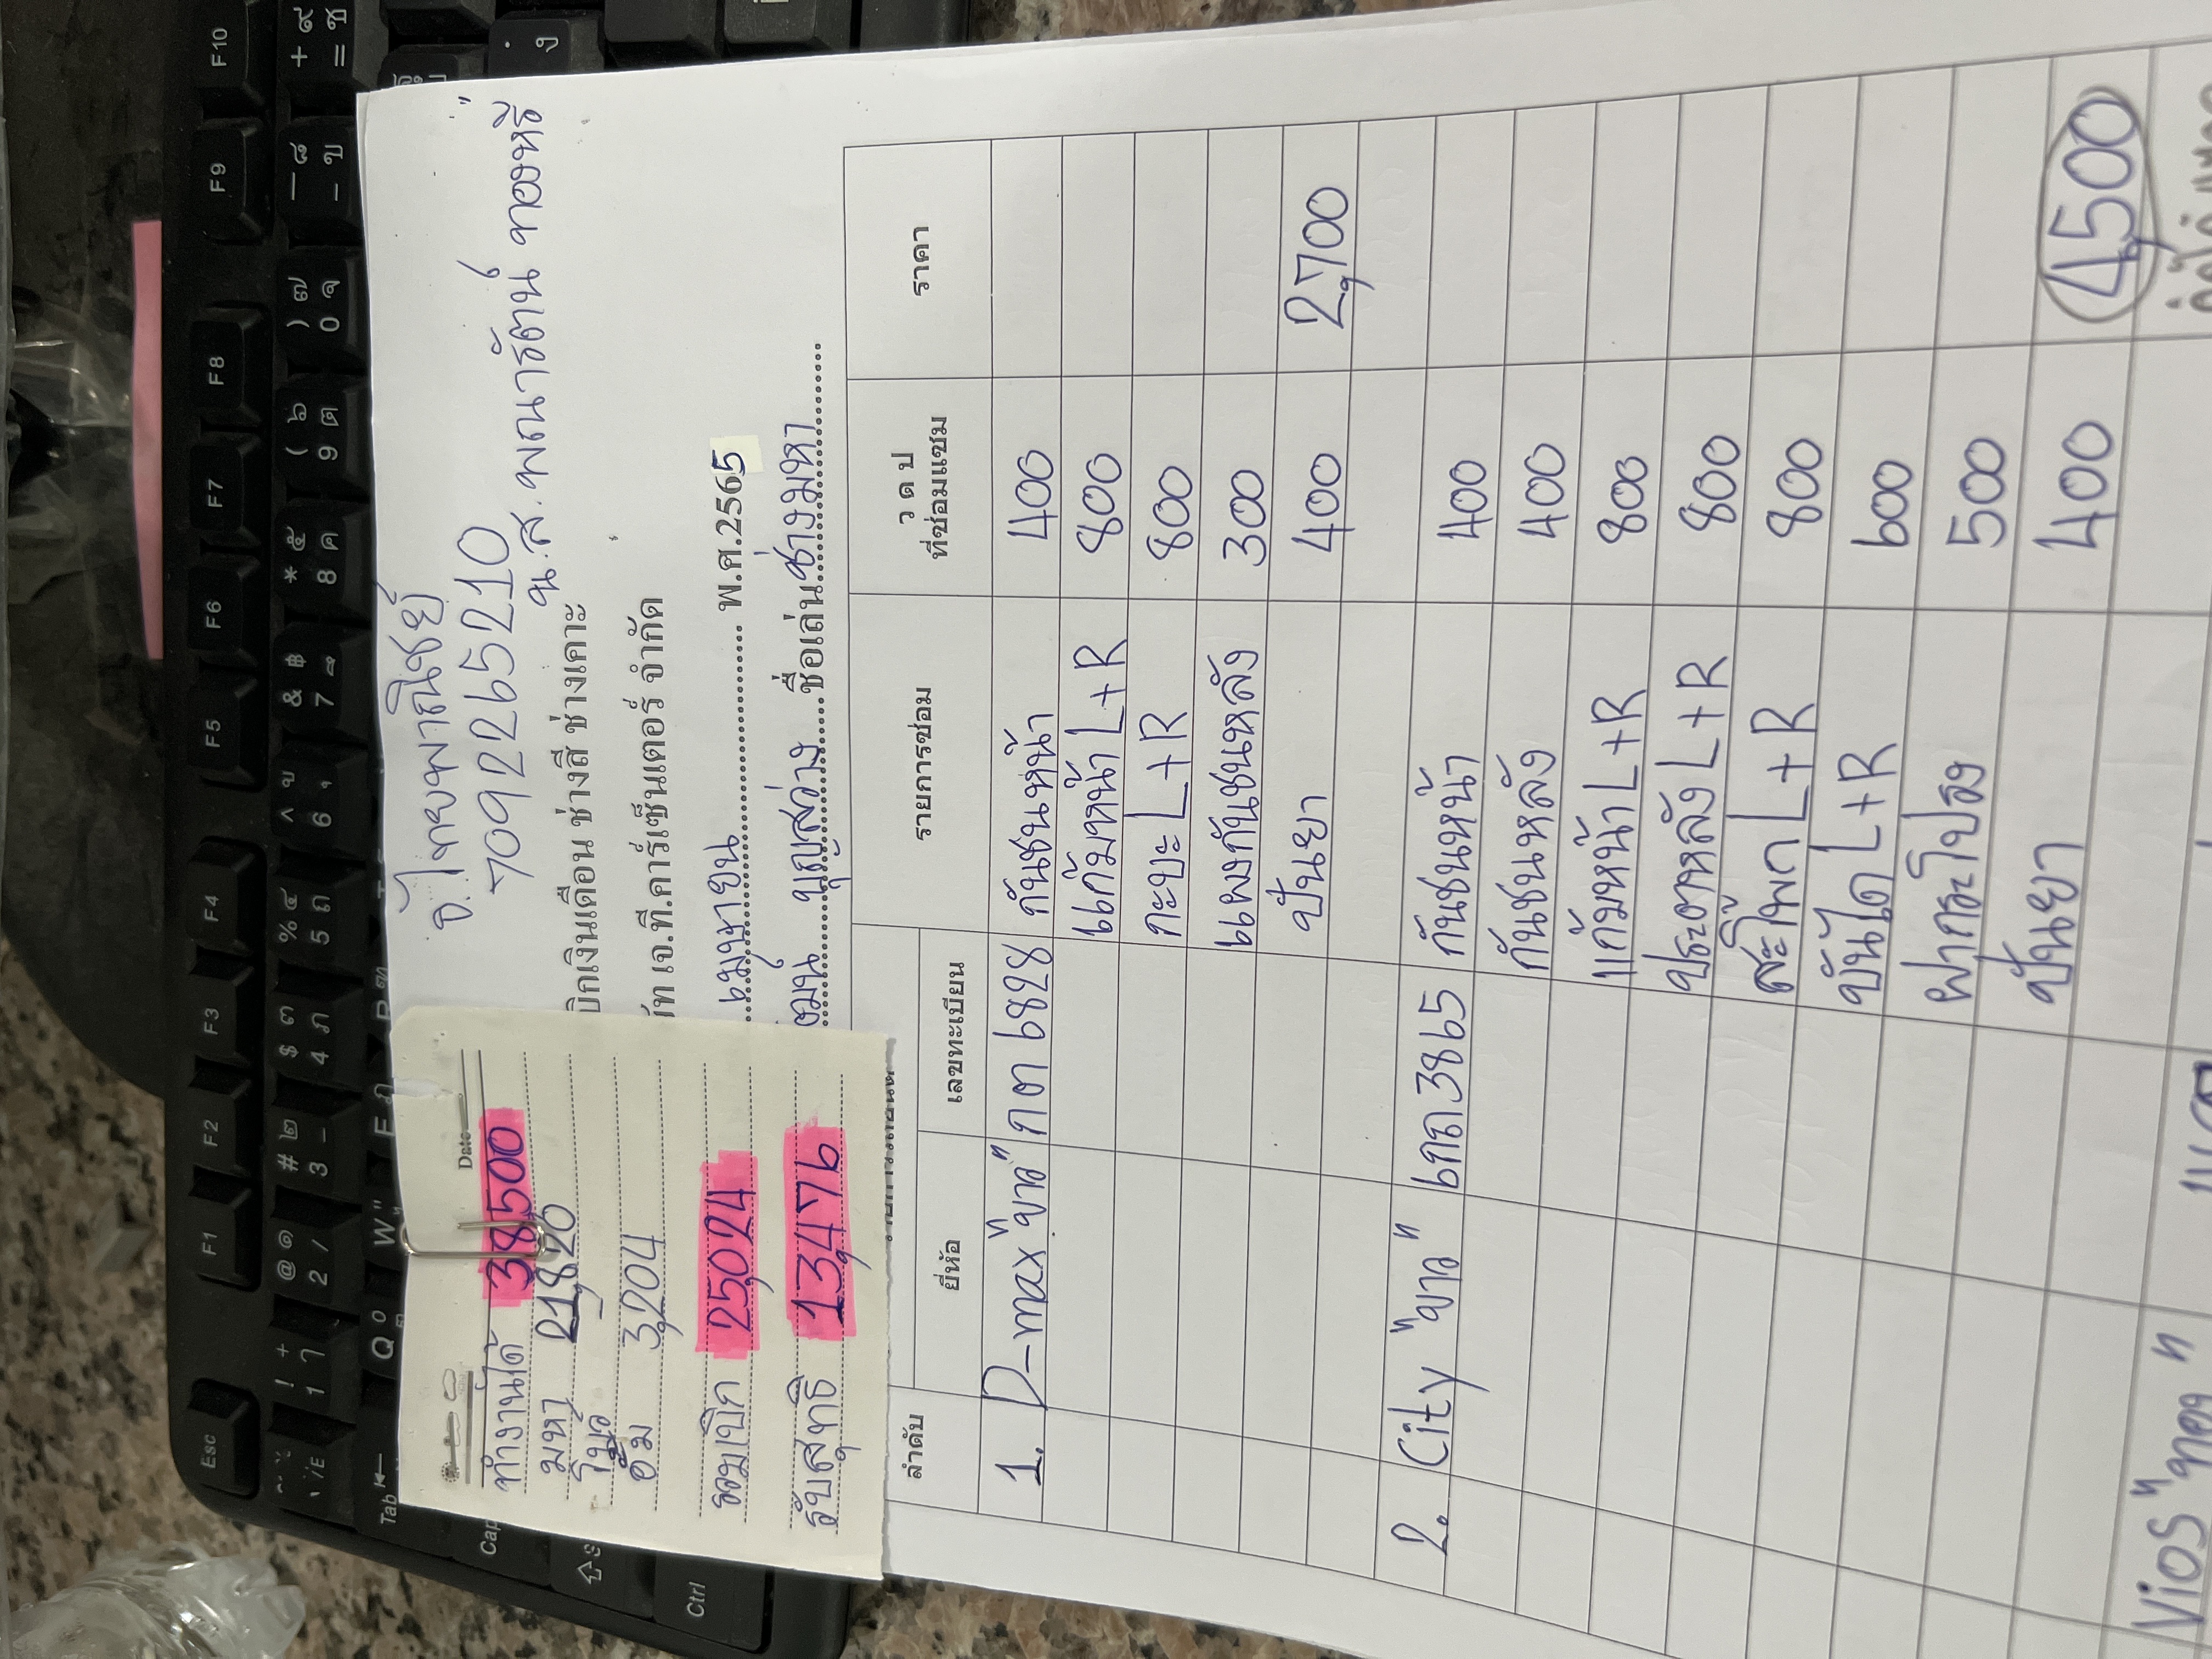 ธ.ไทยพาณิชย์
7092265210
น.ส. พณารัตน์ ทองหริ"
บิกเงินเดือน ช่างสี ช่างเคาะ
ัท เอ.ที.คาร์เซ็นเตอร์ จำกัด
เมษายน พ.ศ.2565
บุญสว่าง ชื่อเล่น ช่างมหา
Date
ทำงานได้ 38,500
มหา 21,820
โบว์
อั๋ม 3,204
รวมเบิก 25,024
รับสุทธิ 13,476
ลำดับ ยี่ห้อ เลขทะเบียน รายการซ่อม ว ด ป ที่ซ่อมแซม ราคา
1. D-max "ขาว" กต 6828 กันชนหน้า 400
แก้มหน้า L+R 800
กะบะ L+R 800
แผงกันชนหลัง 300
ปั่นยา 400 2,700
2. City "ขาว" 6กถ3865 กันชนหน้า 400
กันชนหลัง 400
แก้มหน้า L+R 800
ประตูหลัง L+R 800
สะโพก L+R 800
บันได L+R 600
ฝากระโปรง 500
ปั่นยา 400 4,500
Vios
Esc F1 F2 F3 F4 F5 F6 F7 F8 F9 F10
Tab Q W
Cap
Ctrl